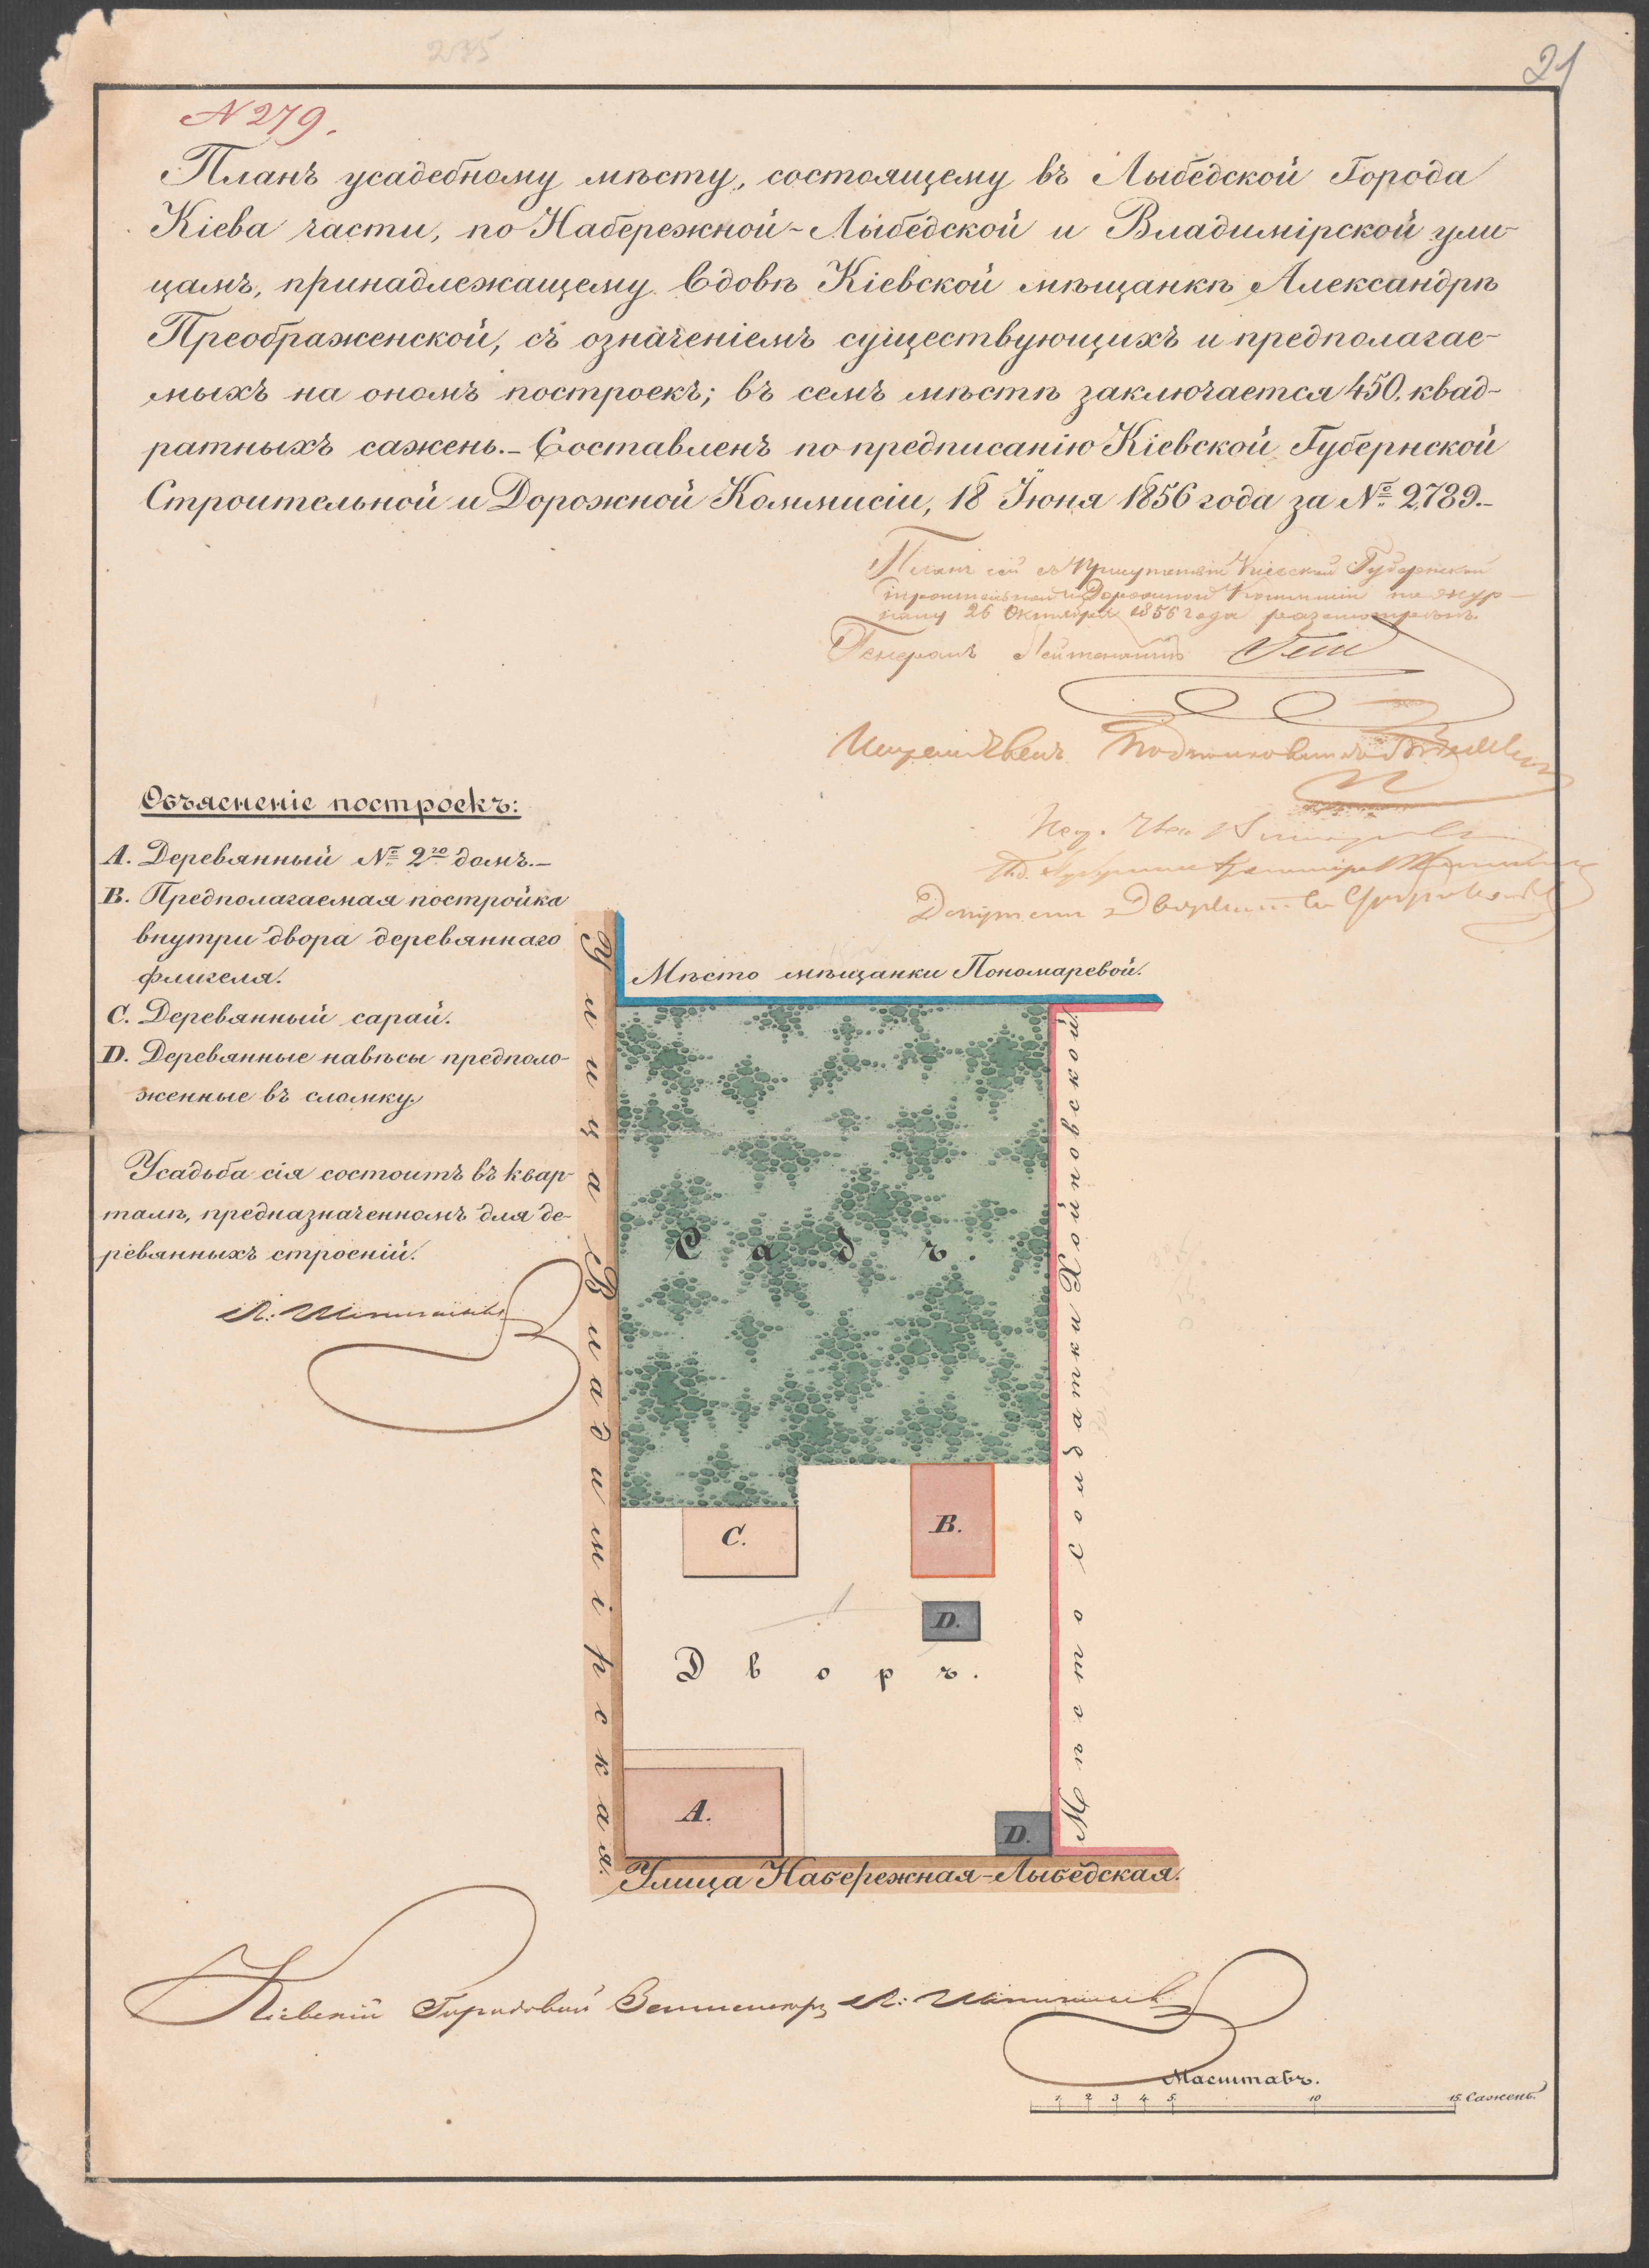 21
N 279.
Планъ усадебному мѣсту, состоящему въ Лыбедской Города
Кіева части, по Набережной-Лыбедской и Владимірской ули-
цамъ, принадлежащему Вдовѣ Кіевской мѣщанкѣ Александрѣ
Преображенской, съ означеніемъ существующихъ и предполагае-
мыхъ на ономъ построекъ; въ семъ мѣстѣ заключается 450. квад-
ратныхъ сажень.- Составленъ по предписанію Кіевской Губернской
Строительной и Дорожной Коммисіи, 18 Іюня 1856 года за № 2,789.-
Планъ сей въ Присутствіи Кіевской Губернской
Строительной и Дорожной Коммисіи по жур-
налу 26 Октября 1856 года разсмотренъ.
Генералъ Лейтенантъ
Объясненіе построекъ:
A. Деревянный № 2го домъ.-
B. Предполагаемая постройка
внутри двора деревяннаго
флигеля.
C. Деревянный сарай.
D. Деревянные навѣсы предполо-
женные въ сломку
Усадьба сія состоитъ въ квар-
талѣ, предназначенномъ для де-
ревянныхъ строеній.
Мѣсто мѣщанки Пономаревой.
Улица Владимірская.
Садъ.
Мѣсто солдатки Хойновской.
C.
B.
D.
Дворъ.
A.
D.
Улица Набережная-Лыбедская.
Кіевскій Городовой Землемеръ
Масштабъ.
1 2 3 4 5 10 15. Сажень.